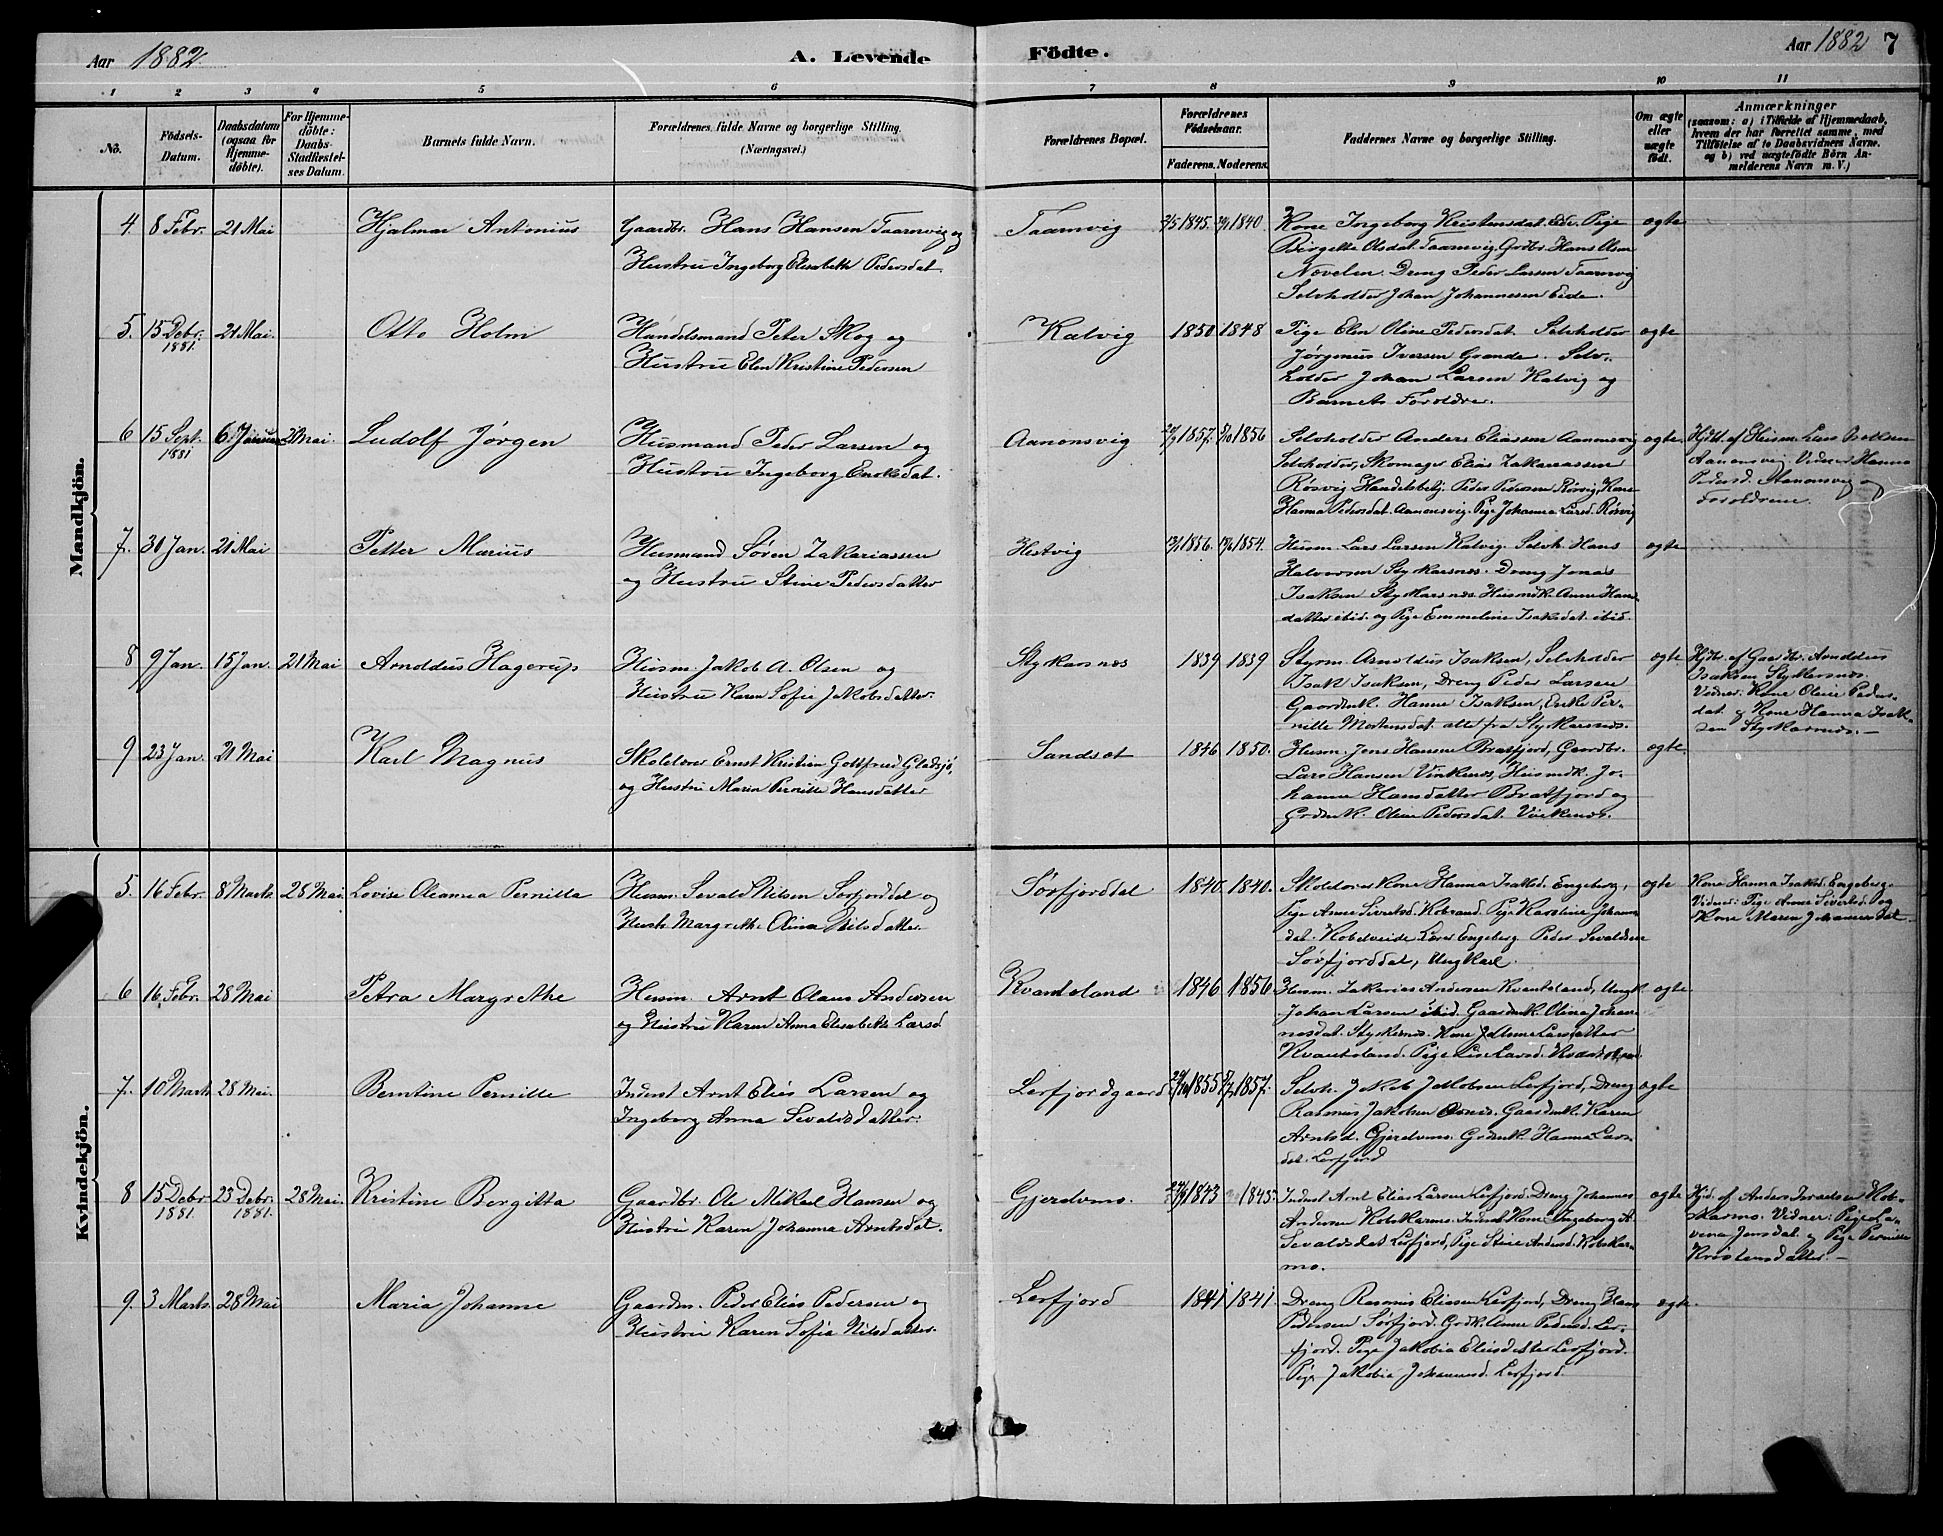 Aar 1882. A. Levende Födte. Aar 1882 7
1 2 3 4 5 6 7 8 9 10 11
No.
Födsels-
Datum.
Daabsdatum
(ogsaa for
Hjemme-
döbte).
For Hjemme-
döbte:
Daabs-
Stadfæstel-
ses Datum.
Barnets fulde Navn.
Forældrenes fulde Navne og borgerlige Stilling.
(Næringsvei.)
Forældrenes Bopæl.
Forældrenes
Födselsaar.
Faderens. Moderens.
Faddernes Navne og borgerlige Stilling.
Om ægte
eller
uægte
födt.
Anmærkninger
(saasom: a) i Tilfælde af Hjemmedaab,
hvem der har forrettet samme, med
Tilföielse af to Daabsvidners Navne.
og b) ved uægtefödte Börn An-
melderens Navn m. V.)
Mandkjön.
4. 8 Febr. 21 Mai Hjalmar Antonius
Gaardbr. Hans Hansen Taarnvig og
Hustru Ingeborg Elisabeth Pedersdat.
Taarnvig 1845. 1840.
Kone Ingeborg Kristensdat. Eide. Pige
Birgitte Olsdat. Taarnvig. Grdbr. Hans Olsen
Nøvelen. Dreng Peder Larsen Taarnvig
Selvholder Johan Johannesen Eide.
ægte
5. 15 Debr. 1881. 21 Mai. Otto Holm
Handelsmand Peter Skog og
Hustru Elen Kristine Pedersen
Kalvig 1850 1848
Pige Elen Oline Pedersdat. Selvholder
Jørginus Iversen Grande. Selv-
holder Johan Larsen Kalvig og
Barnets Forældre.
ægte
6 15 Sept. 1881 6 Januar 30 Mai. Ludolf Jørgen
Husmand Peder Larsen og
Hustru Ingeborg Enoksdat.
Aanonsvig 1857. 1856
Selvholder Anders Eliasen Aanonsvig
Selvholder, Skomager Elias Zakariassen
Røsvig Handelsbetj. Peder Pedersen Rørvig, Kone
Hanna Pedersdat. Aanonsvig. Pige Johanna Larsd. Rørvig
ægte
Hjdt. af Husm. Lars
Aanonsvig. Vidner Hanna
Pedersd. Aanonsvig og
Forældrene.
7. 30 Jan. 21 Mai Petter Marius
Husmand Søren Zakariassen
og Hustru Stine Pedersdatter
Hestvig 1856. 1854.
Husm. Lars Larsen Kalvig. Selvh. Hans
Halvorsen Styrkarsnes. Dreng Jonas
Isaksen Styrkarsnes. Husmdk. Anne Hans-
datter ibid. og Pige Emmeline Isaksdat. ibid.
ægte
8 9 Jan. 15 Jan. 21 Mai Arnoldus Hagerup
Husm. Jakob A. Olsen og
Hustru Karen Sofie Jakobsdatter.
Styrkarsnes 1839 1839
Styrm. Arnoldus Isaksen, Selvholder
Isak Isaksen, Dreng Peder Larsen
Gaardmk. Hanne Isaksen, Enke Per-
nille Mortensdat. alle fra Styrkarsnes.
ægte
Hjdbt. af Gaardbr. Arnoldus
Isaksen Styrkersnes.
Vidner: Kone Oline Peders-
dat. og Kone Hanna Isak-
sen Styrkarsnes.—
9 23 Jan. 21 Mai Karl Magnus
Skolelærer Ernst Kristian Gottfried Gladsjø,
og Hustru Maria Pernille Hansdatter
Sandsæt 1846 1850.
Husm. Jens Hansen Bratfjord, Gaardbr.
Lars Hansen Vinkenes, Husmdk. Jo-
hanna Hansdatter Bratfjord og
Grdmk. Oline Pedersdat. Vinkenes.
ægte.
Kvindekjön.
5. 16 Febr. 8 Marts. 28 Mai. Lovise Oleanna Pernilla
Husm. Sevald Nilsen Sørfjorddal og
Hust. Margrethe Olina Nilsdatter.
Sørfjorddal 1840. 1840.
Skolelærer Kone Hanna Isaksd. Engeberg,
Pige Anne Sivertsd. Kobsand. Pige Karoline Johans-
dat. Kobelveide Lærer Engeberg. Peder Sevaldsen
Sørfjorddal, Ungkarl.
ægte
Kone Hanna Isaksd. Engeberg.
Vidner: Pige Anne Sivertsd. og
Kone Maren Johannesdat.
6 16 Febr. 28 Mai Petra Margrethe
Husm. Arnt Olaus Andersen
og Hustru Karen Anna Elisabeth Larsd.
Kvantoland 1846 1856
Husm. Zakarias Andersen Kvantoland, Ungk.
Johan Larsen ibid. Gaardmk. Olina Johan-
nesdat. Styrkernes. Kone J. Anne Larsdatter
Kvantoland. Pige Lise Larsd.
ægte
7. 10 Marts 28 Mai. Berntine Pernille
Inderst Arnt Elias Larsen og
Ingeborg Anna Sevaldsdatter.
Lerfjordgaard 1855 1857.
Selvh. Jakob Jakobsen Lerfjord, Dreng
Rasmus Jakobsen Gaardmk. Karen
Arntsd. Gjerdvms. Grdmk. Hanna Lars-
dat. Lerfjord
ægte
8 15 Debr. 1881. 23 Debr. 1881. 28 Mai. Kristine Bergitta
Gaardbr. Ole Mikal Hansen og
Hustru Karen Johanna Arntsdat.
Gjerdvmo. 1843 1845
Inderst Arnt Elias Larsen Lerfjord. Dreng Johannes
Andersen Kobskarmo. Inderst Kone Ingeborg A.
Sevaldsdat Lerfjord, Pige Stine Andersd. Kobskar-
mo.
ægte
Hjd. af Anders Israelsen Kob-
skarmo. Vidner: Pige La-
vina Jensdat. og Pige Pernille
Kristensdatter.—
9. 3 Marts. 28 Mai Maria Johanne
Gaardm. Peder Elias Pedersen og
Hustru Karen Sofia Nilsdatter.
Lerfjord 1841 1841.
Dreng Rasmus Eliasen Lerfjord, Dreng Hans
Pedersen Sørfjord. Grdk. Anne Pedersd. Ler-
fjord. Pige Jakobia Eliasdatter Lerfjord.
Pige Jakobia Johannesd. Lerfjord.
ægte.